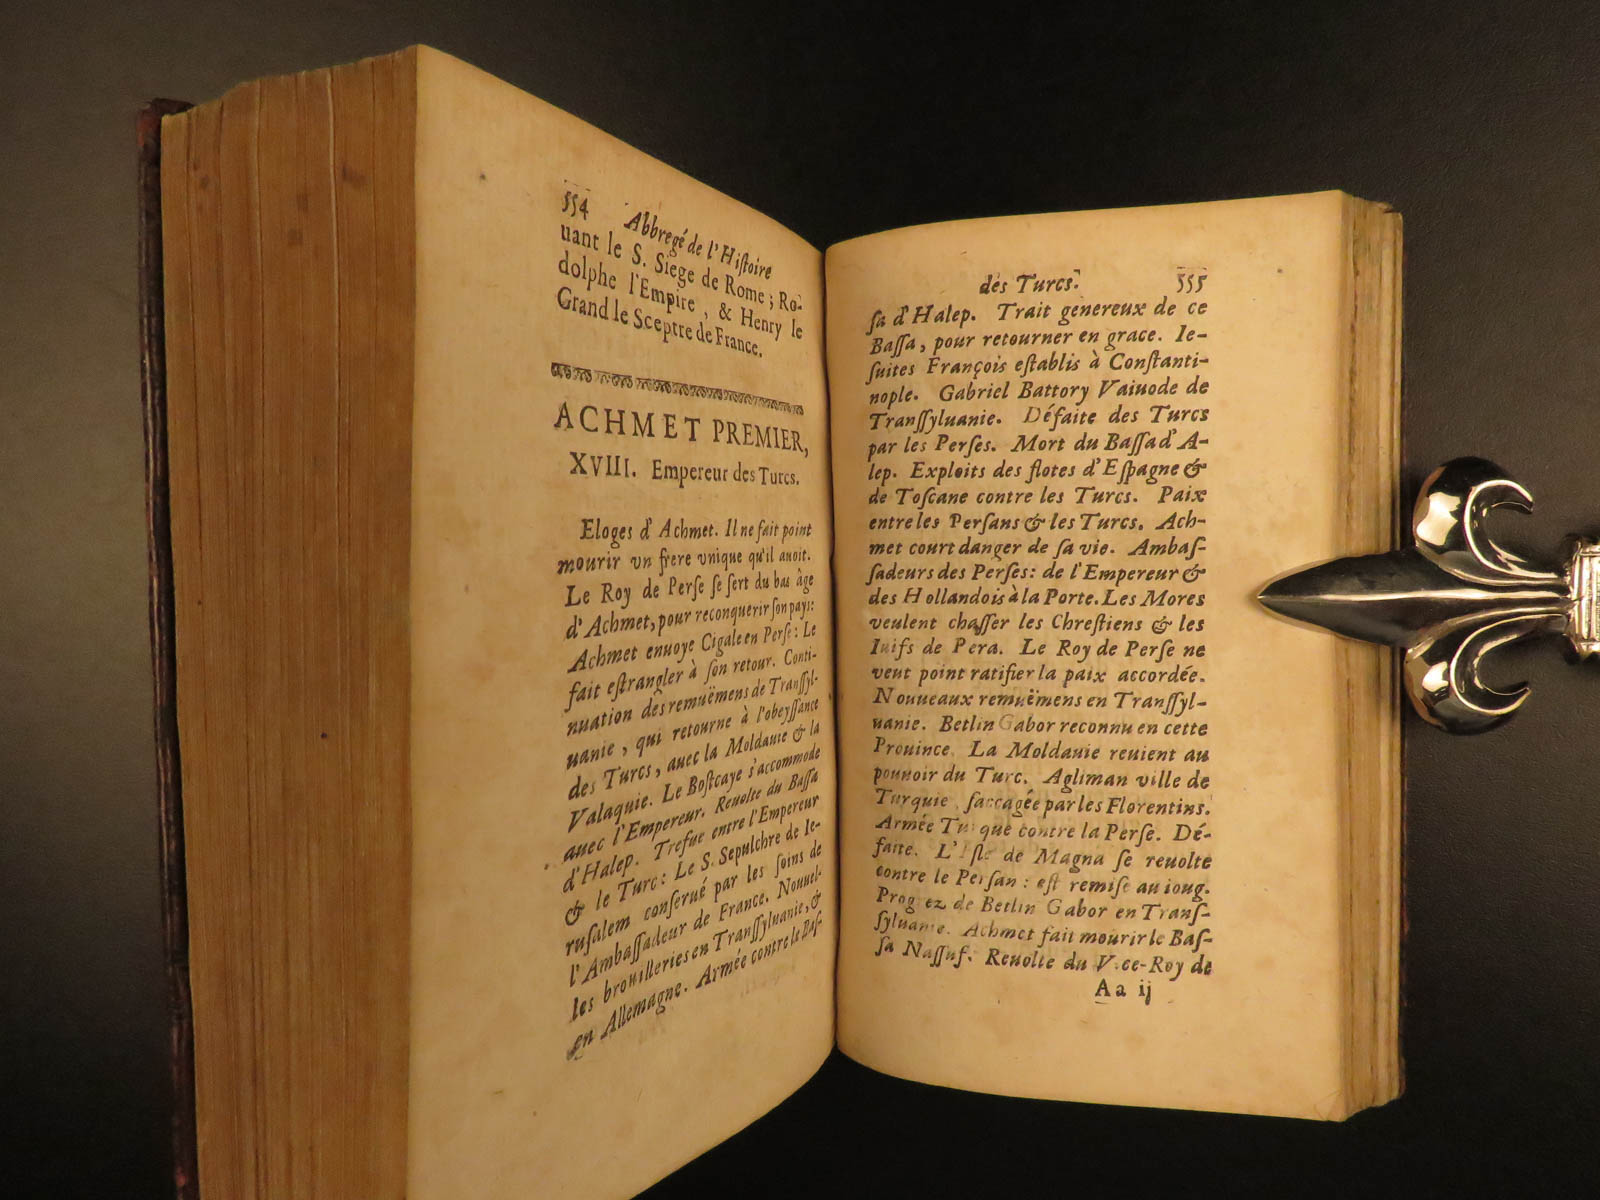 554 Abbregé de l'Hiſtoire
uant le S. Siege de Rome; Ro-
dolphe l'Empire, & Henry le
Grand le Sceptre de France.
ACHMET PREMIER,
XVIII. Empereur des Turcs.
Eloges d'Achmet. Il ne fait point
mourir vn frere vnique qu'il auoit.
Le Roy de Perſe ſe ſert du bas âge
d'Achmet, pour reconquerir ſon pays:
Achmet enuoye Cigale en Perſe: Le
fait eſtrangler à ſon retour. Conti-
nuation des remuëmens de Tranſſyl-
uanie, qui retourne à l'obeyſſance
des Turcs, auec la Moldauie & la
Valaquie. Le Boſtcaye s'accommode
auec l'Empereur. Reuolte du Baſſa
d'Halep. Trefue entre l'Empereur
& le Turc: Le S. Sepulchre de Ie-
ruſalem conſerué par les ſoins de
l'Ambaſſadeur de France. Nouuel-
les brouilleries en Tranſſyluanie, &
en Allemagne. Armée contre le Baſ-
des Turcs. 555
ſa d'Halep. Trait genereux de ce
Baſſa, pour retourner en grace. Ie-
ſuites François eſtablis à Conſtanti-
nople. Gabriel Battory Vaiuode de
Tranſſyluanie. Défaite des Turcs
par les Perſes. Mort du Baſſa d'A-
lep. Exploits des flotes d'Eſpagne &
de Toſcane contre les Turcs. Paix
entre les Perſans & les Turcs. Ach-
met court danger de ſa vie. Ambaſ-
ſadeurs des Perſes: de l'Empereur &
des Hollandois à la Porte. Les Mores
veulent chaſſer les Chreſtiens & les
Iuifs de Pera. Le Roy de Perſe ne
veut point ratifier la paix accordée.
Nouueaux remuëmens en Tranſſyl-
uanie. Betlin Gabor reconnu en cette
Prouince. La Moldauie reuient au
pouuoir du Turc. Agliman ville de
Turquie ſaccagée par les Florentins.
Armée Turque contre la Perſe. Dé-
faite. L'Iſle de Magna ſe reuolte
contre le Perſan: eſt remiſe au ioug.
Progrez de Betlin Gabor en Tranſ-
ſyluanie. Achmet fait mourir le Baſ-
ſa Naſſuf. Reuolte du Vice-Roy de
Aa ij